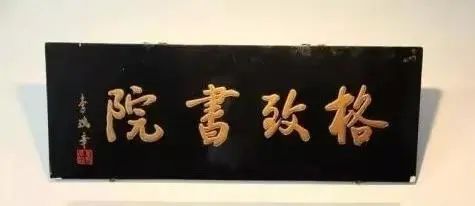 格致書院
李鴻章